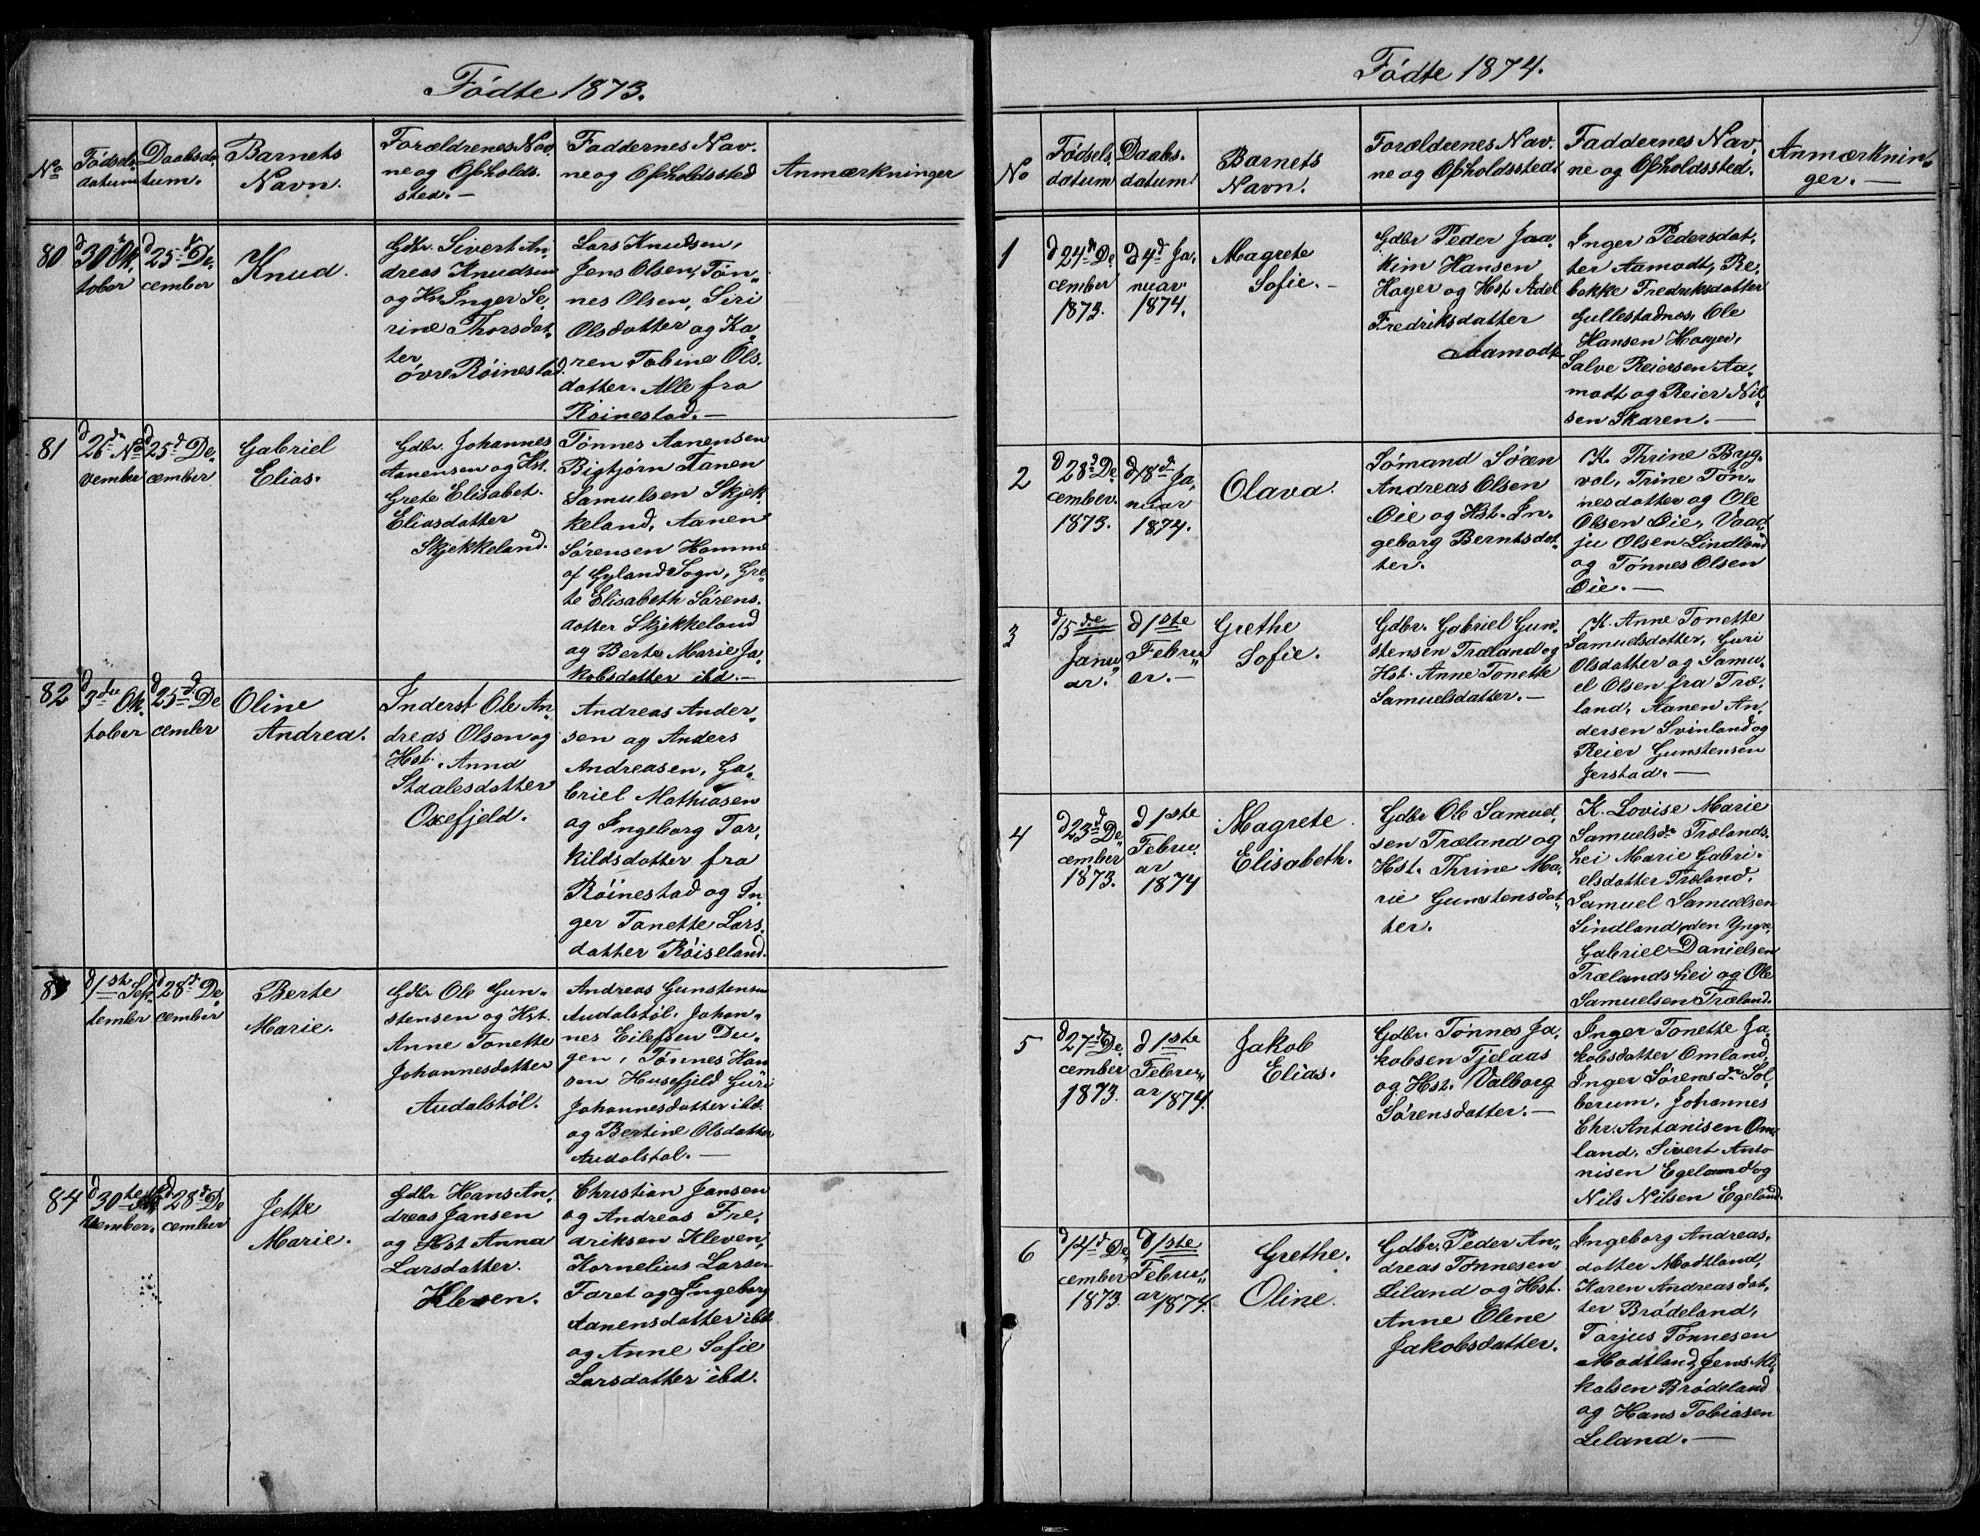 Fødte 1873.
No
Fødsels datum
Daabsdatum.
Barnets Navn.
Forældrenes Navne og Opholdssted.—
Faddernes Navne og Opholdssted
Anmærkninger
80
d 30te Oktober
d 25de December
Knud.
Gdbr. Sivert An-
dreas Knudsen
og H. Inger Se-
rine Thorsdat-
ter
øvre Röinestad.
Lars Knudsen,
Jens Olsen, Tøn-
nes Olsen, Siri
Olsdatter og Ka-
ren Tobine Ols-
datter. Alle fra
Röinestad.—
81
d 26de November
d 25d December
Gabriel
Elias.
Gdbr. Johannes
Aanensen og Hst.
Grete Elisabet.
Eliasdatter
Skjekkeland.
Tønnes Aanensen
Bigtjørn Aanen
Samulsen Skjek-
keland, Aanen
Sørensen Homme
af Gyland Sogn, Gre-
te Elisabeth Sørens-
datter Skjekkeland
og Berte Marie Ja-
kobsdatter ibd.—
82
d 3die Oktober
d 25de December
Oline
Andrea.
Inderst Ole An-
dreas Olsen og
Hst. Anna
Staalesdatter
Oxefjeld.
Andreas Ander-
sen og Anders
Andreasen, Ga-
briel Mathiasen
og Ingeborg Tor-
kildsdatter fra
Röinestad og In-
ger Tonette Lars-
datter Røiseland.
83
d 1ste September
d 28de December
Berte
Marie.
Gdbr Ole Gun-
stensen og Hst.
Anne Tonette
Johannesdatter
Audalstøl.
Andreas Gunstensen
Audalstøl, Johan-
nes Eilefsen Du-
gen, Tønnes Han
sen Husefjeld Guri
Johannesdatter ibd.
og Bertine Olsdatter
Audalstøl.—
84
d 30te
d 28de December
Jette
Marie.
Gdbr Hans An-
dreas Jansen
og Hst Anna
Larsdatter.
Kleven.
Christian Jansen
og Andreas Fre-
driksen Kleven,
Kornelius Larsen
Faret og Ingeborg
Aanensdatter ibd
og Anne Sofie
Larsdatter ibd.
9
Fødte 1874.
No
Fødsels datum
Daabs. datum.
Barnets Navn.
Forældrenes Navne og Opholdssted
Faddernes Navne og Opholdssted.
Anmærkninger.—
1
d 24de December 1873.
d 4d Januar 1874.
Magrete
Sofie.—
Gdbr Peder Joa
kim Hansen
Høyer og Hst. Adel
Fredriksdatter
Aamodt
Inger Pedersdat-
ter Aamodt, Re-
bekke Fredriksdatter
Gullestadnes, Ole
Hansen Høyer,
Salve Reiersen Aa-
modt og Reier Nil-
sen Skaren.—
2
d 28de December. 1873.
d 18de Januar 1874.
Olava.
Sømand Søren
Andreas Olsen
Øie og Hst. In-
geborg Berntsdat-
ter.
K. Thrine Byg-
vol, Trine Tøn-
nesdatter og Ole
Olsen Øie, Vaad-
ju Olsen Lindland
og Tønnes Olsen
Øie.—
3
d 15de Januar.
d 1ste Februar.—
Grethe
Sofie.
Gdbr. Gabriel Gun-
stensen Træland og
Hst. Anne Tonette
Samuelsdatter.—
K. Anne Tonette
Samuelsdatter, Guri
Olsdatter og Samu-
el Olsen fra Træ-
land, Aanen An-
dersen Svinland og
Reier Gunstensen
Jerstad.—
4
d 23d December 1873.
d 1ste Februar 1874
Magrete
Elisabeth.
Gdbr Ole Samuel-
sen Træland og
Hst. Thrine Ma-
rie Gunstensdat-
ter.
K. Lovise Marie
Samuelsdr Trælands-
hei Marie Gabri-
elsdatter Træland.
Samuel Samuelsen
Sindland, den Yngr.
Gabriel Danielsen
Trælandshei og Ole
Samuelsen Træland.
5
d 27de December 1873.
d 1ste Februar 1874.
Jakob
Elias.
Gdbr. Tønnes Ja-
kobsen Tjelaas
og Hst. Valborg
Sørensdatter.—
Inger Tonette Ja-
kobsdatter Omland,
Inger Sørensdr Sol
berum, Johannes
Chr. Antonisen Om-
land, Sivert Anto
nisen Egeland og
Nils Nilsen Egeland.
6
d 14d December 1873.
d 1ste Februar 1874.
Grethe.
Oline.
Gdbr. Peder An-
dreas Tønnesen
Leland og Hst.
Anne Olene
Jakobsdatter.
Ingeborg Andreas-
datter Modtland,
Karen Andreasdat-
ter Brødeland,
Torjus Tønnesen
Modtland, Jens Mi-
kalsen Brødeland
og Hans Tobiasen
Leland.—